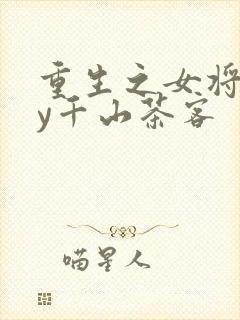 重生之女将
y千山茶客
喵星人